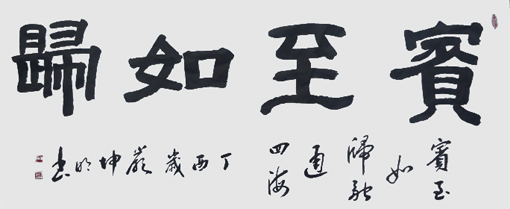 賓至如歸
賓至
如
歸融
通
四海
丁酉歲嚴坤明書